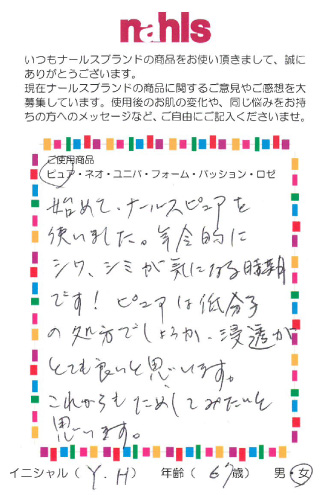 nahls
いつもナールスブランドの商品をお使い頂きまして、誠に
ありがとうございます。
現在ナールスブランドの商品に関するご意見やご感想を大
募集しています。使用後のお肌の変化や、同じ悩みをお持
ちの方へのメッセージなど、ご自由にご記入くださいませ。
ご使用商品
ピュア・ネオ・ユニバ・フォーム・パッション・ロゼ
始めて、ナールスピュアを
使いました。年令的に
シワ、シミが気になる時期
です! ピュアは低分子
の処方でしょうか、浸透が
とても良いと思います。
これからもためしてみたいと
思います。
イニシャル ( Y. H ) 年齢 ( 67歳) 男・女